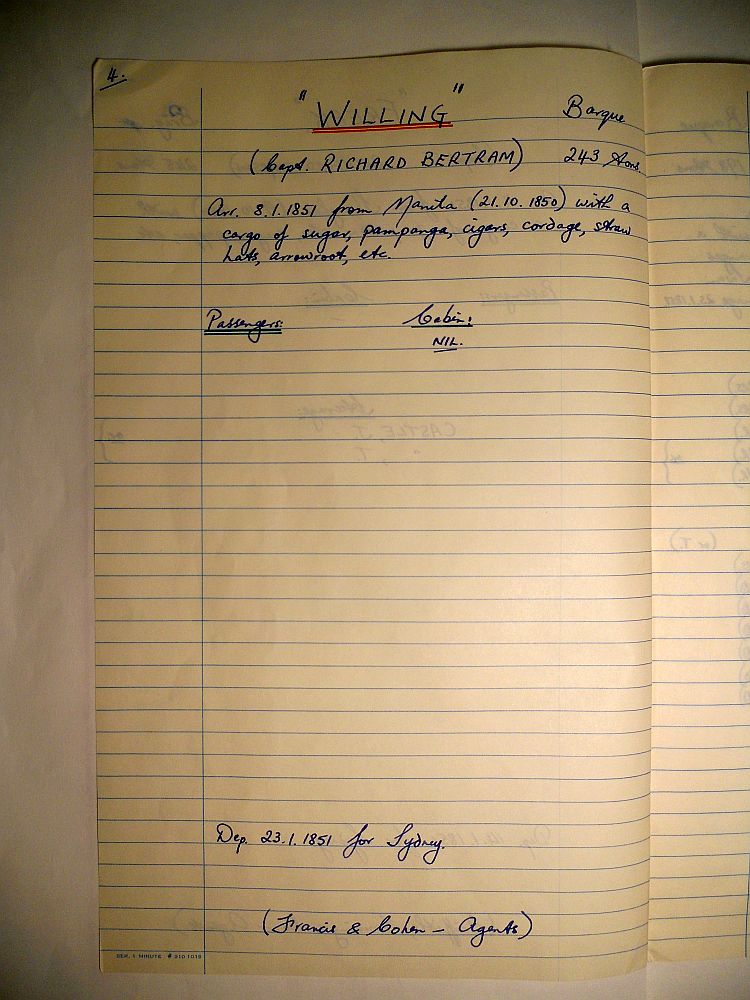 4.
"WILLING" Barque
(Capt. RICHARD BERTRAM) 243 tons.
Arr. 8.1.1851 from Manila (21.10.1850) with a
cargo of sugar, pampanga, cigars, cordage, straw
hats, arrowroot, etc.
Passengers: Cabin:
NIL.
Dep. 23.1.1851 for Sydney.
(Francis & Cohen – Agents)